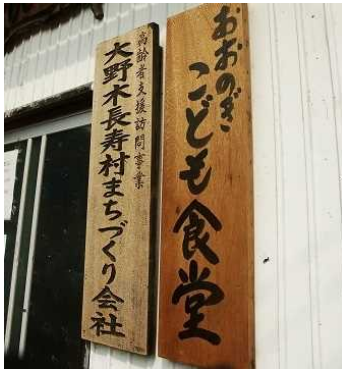 おおのぎ
こども食堂
高齢者支援訪問事業
大野木長寿村まちづくり会社